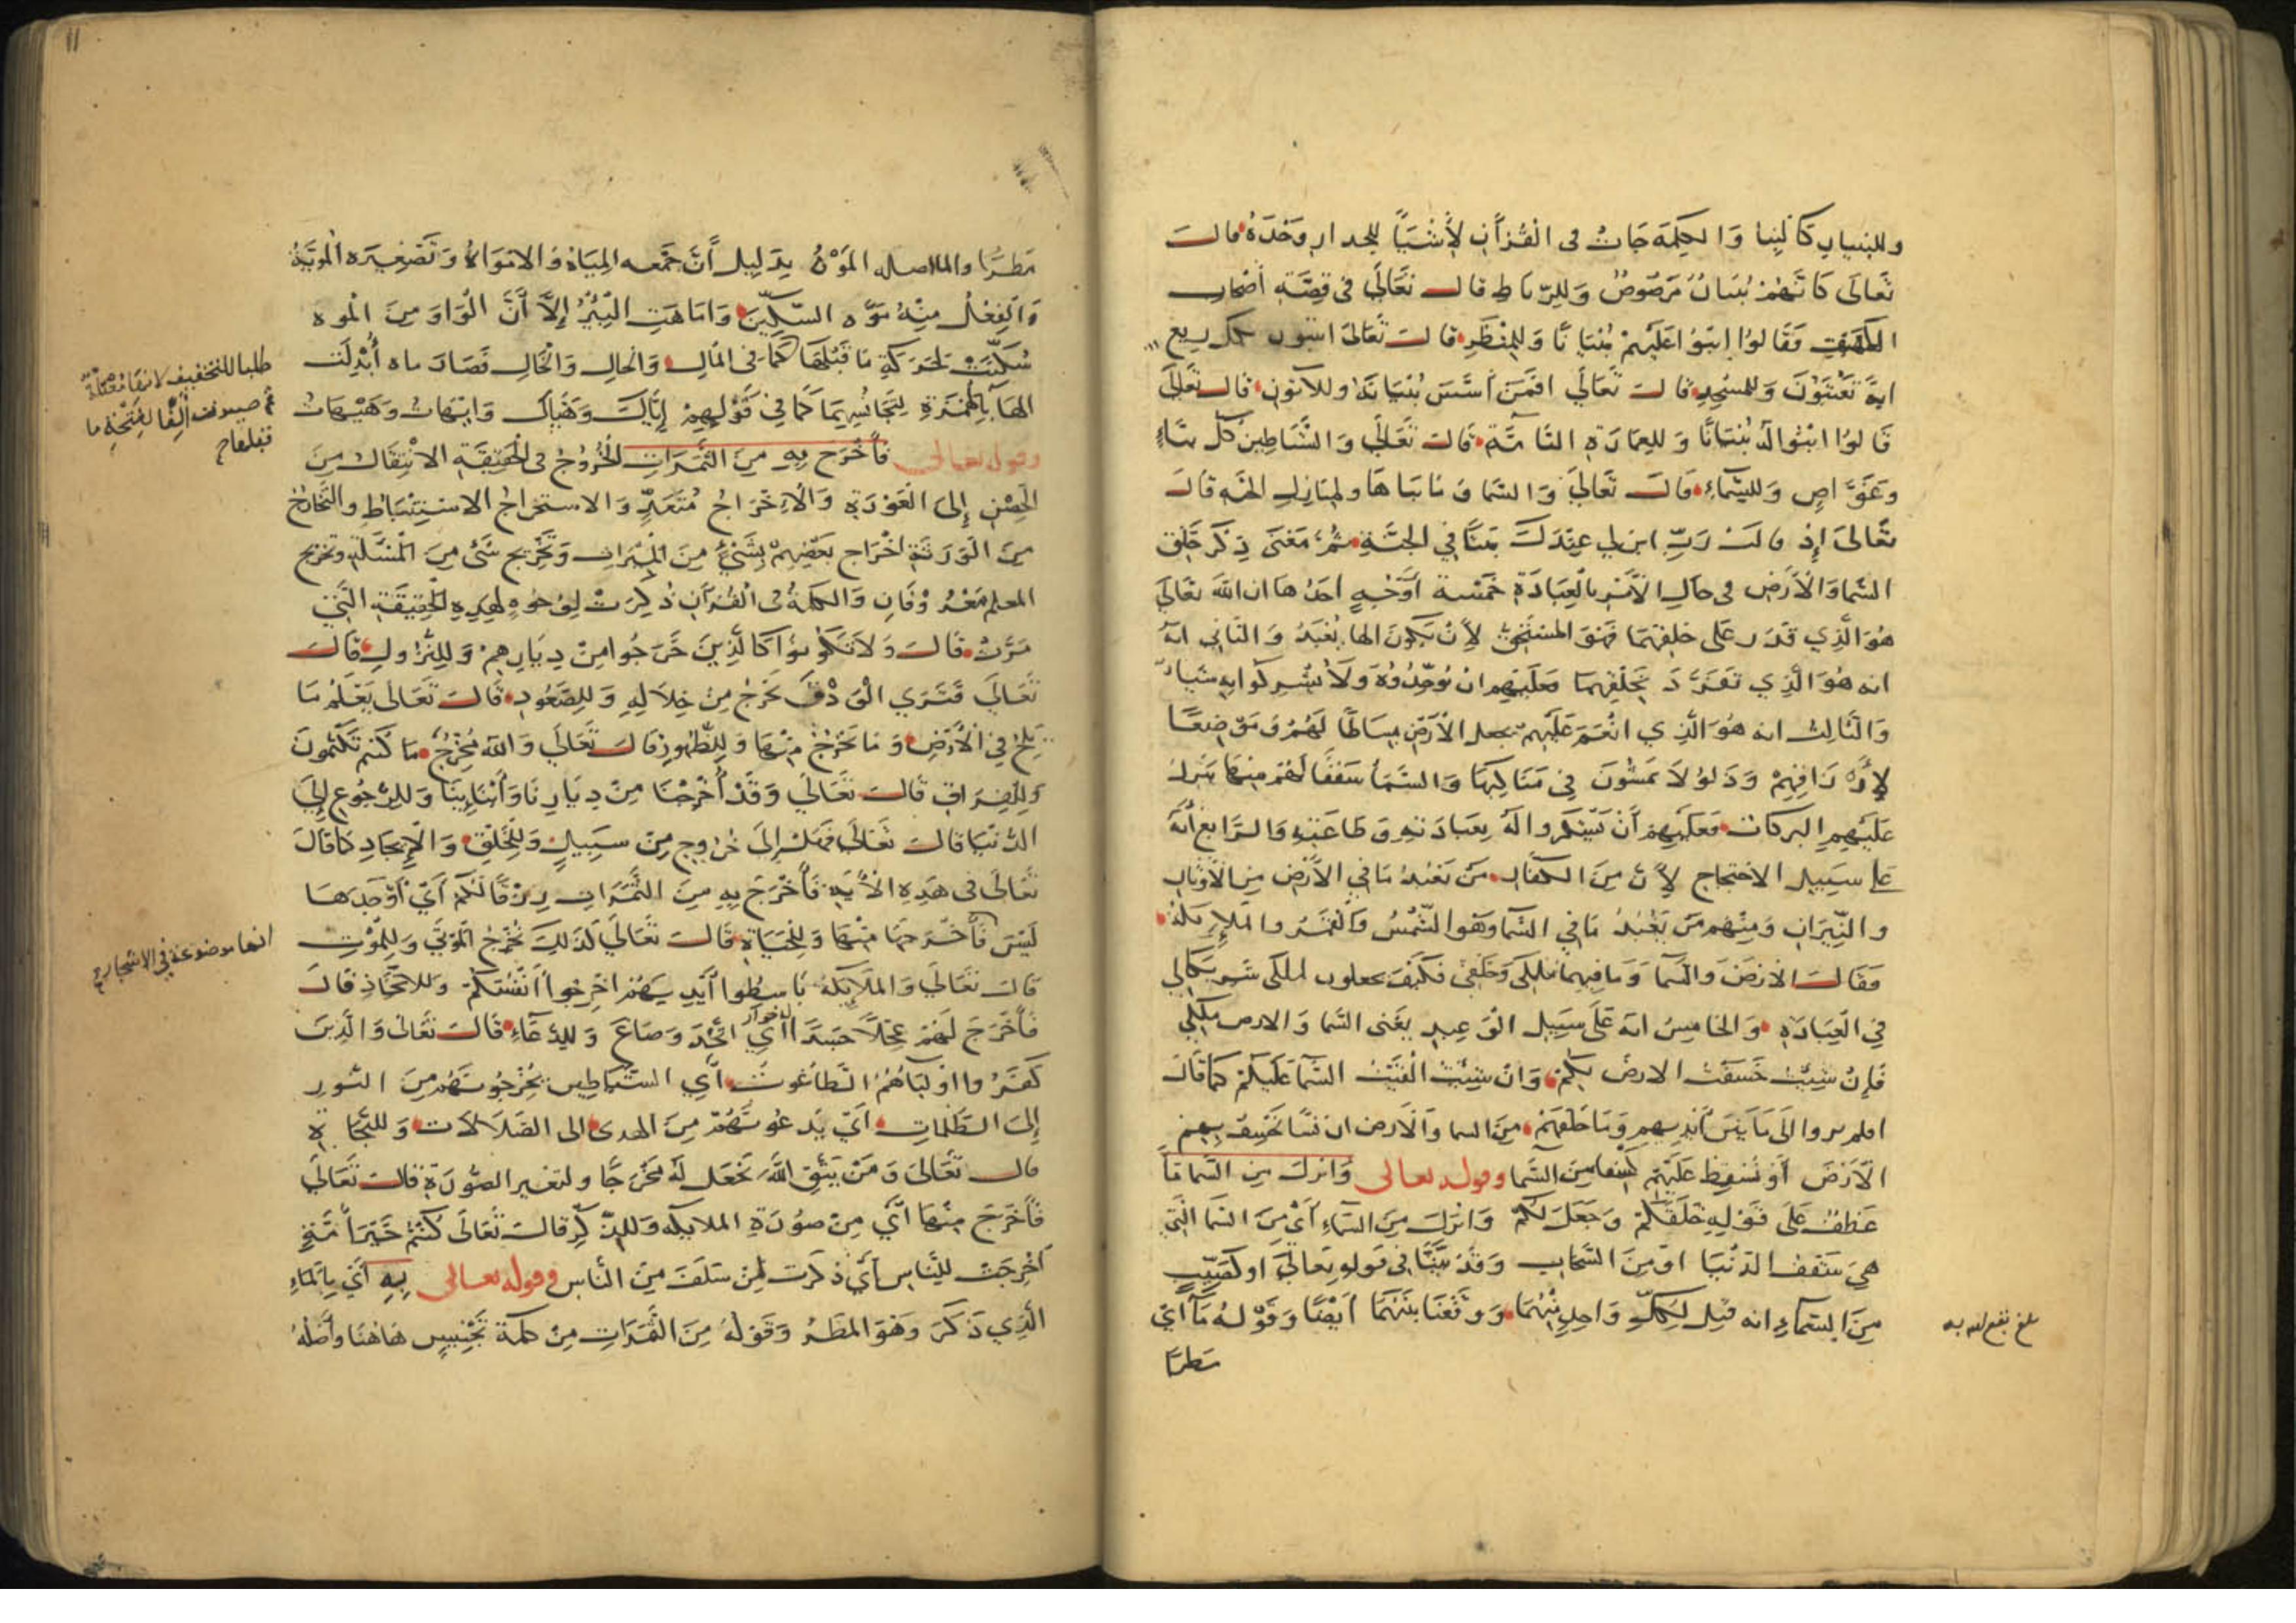 وللبنيان كالبنا والكلمة جات فى القرآن لأشيآ للجدار وحده قالت
تعالى كانهم بنيان مرصوص وللرباط قالت تعالى فى قصة أصحاب
الكهف فقالوا ابنوا عليهم بنيانا وللمنظر قالت تعالى اتبنون بكل ريع
اية تعبثون وللمسجد قالت تعالى افمن أسس بنيانه وللاتون قالت تعالى
قالوا ابنوا له بنيانا وللعمارة التامة قالت تعالى والشياطين كل بناء
وغواص وللسماء قالت تعالى والسماء وما بناها ولمنازل الجنة قالت
تعالى إذ قالت رب ابن لي عندك بيتا في الجنة ثم معنى ذكر خلق
السما والأرض فى حال الأمر بالعبادة خمسة أوجه احدها ان الله تعالى
هو الذي قدر على خلقهما فهو المستحق لأن يكون الها يعبد والثاني انه
انه هو الذي تفرد بخلقهما فعليهم ان يوحدوه ولا يشركوا به شيا
والثالث انه هو الذي انعم عليهم بجعل الأرض بساطا لهم وموضعا
علیهم البركات فعليهم أن يشكروا له بعبادته وطاعته والرابع أنه
على سبيل الاحتجاج لأن من الكفار من يعبد ما في الأرض من الأوثان
والنيران ومنهم من يعبد ما في السما وهو الشمس والقمر والملايكة
فقالت الارض والسما وما فيهما ملكى وخلقى فكيف يجعلون ملكى شريكا لي
في العبادة والخامس انه على سبيل الوعيد يعنى السما والارض ملكي
فإن شيت خسفت الارض بكم وان شيت القيت السما عليكم كما قال
افلم يروا الى ما بين أيديهم وما خلفهم من السما والأرض ان نشا نخسف بهم
الأرض أو نسقط عليهم كسفا من السما وقوله تعالى وانزل من السما مآ
عطف على قوله خلقكم وجعل لكم وانزل من السماء أى من السما التي
هي سقف الدنيا او من السحاب وقد بينا في قوله تعالى او كصيب
من السماء انه قيل لكل واحد منهما ووقعنا بينهما ايضا وقوله مآ اى
مطرا
بلغ نفع الله به
مطرا والما اصله الموه بدليل أن جمعه المياه والامواه وتصغيره المويه
والفعل منه موه السكين واماهت البئر إلا أن الواو من الموه
سكنت لحركة ما قبلها كما فى المال والحال والخال فصار ماه أبدلت
الها بالهمزة لتجانسهما كما في قولهم إياك وهياك وايهات وهيهات
وقوله تعالى فأخرج به من الثمرات الخروج فى الحقيقة الانتقال من
الحصن إلى العورة والاخراج متعد والاستخراج الاستنباط والتخارج
من الورثة اخراج بعضهم بشيء من الميراث وتخريج شى من المسئلة وتخريج
المعلم معروفان والكلمة فى القرآن ذكرت لوجوه لهذه الحقيقة التي
مرت قالت ولا تكونوا كالذين خرجوا من ديارهم وللنزول قالت
تعالى فترى الودق يخرج من خلاله وللصعود قالت تعالى يعلم ما
يلج في الأرض وما يخرج منها وللظهور قالت تعالى والله مخرج ما كنتم تكتمون
وللفراق قالت تعالى وقد أخرجنا من ديارنا وأبناينا وللرجوع إلى
الدنيا قالت تعالى فهل إلى خروج من سبيل وللخلق والإيجاد كما قال
تعالى فى هذه الأية فأخرج به من الثمرات رزقا لكم أي أوجدها
ليس فأخرجها منها وللحياة قالت تعالى كذلك نخرج الموتى وللموت
قالت تعالى والملايكة باسطوا أيديهم اخرجوا أنفسكم وللاتخاذ قال
فأخرج لهم عجلا جسدا له خوار أي اتخذ وصاغ وللدعاء قالت تعالى والذين
كفروا اوليآهم الطاغوت أي الشياطين يخرجونهم من النور
إلى الظلمات اي يدعونهم من الهدى الى الضلالات وللنجاة
قالت تعالى ومن يتق الله يجعل له مخرجا ولتغير الصورة قالت تعالى
فأخرج منها أي من صورة الملايكه وللذكر قالت تعالى كنتم خير أمة
أخرجت للناس أى ذكرت لمن سلف من الناس وقوله تعالى به أي بالماء
الذي ذكر وهو المطر وقوله من الثمرات من كلمة تجنيس هاهنا وأصله
طلبا للتخفيف لانها معتلة
ثم صيرت ألفا لفتحة ما
قبلها صح
انها موضوعة في الاشجار صح
11